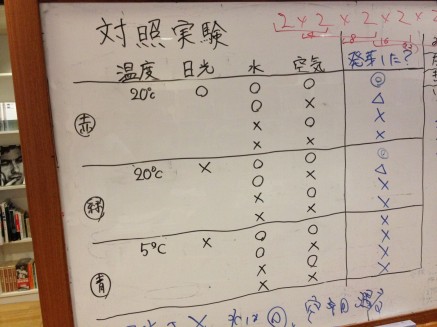 対照実験
2×2×2×2×2
4 8 16 32
温度 日光 水 空気 発芽した?
20℃ ○ ○ ○ ◎
○ × △
赤 × ○ ×
× × ×
20℃ × ○ ○ ◎
○ × △
緑 × ○ ×
× × ×
5℃ × ○ ○ ×
○ × ×
青 × ○ ×
× × ×